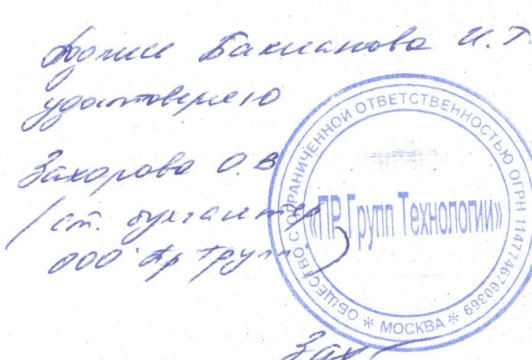 Подписи Бакланова И.Т.
удостоверяю
Захарова О.В
(ст. бухгалтер
ООО Пр Групп)
ОБЩЕСТВО С ОГРАНИЧЕННОЙ ОТВЕТСТВЕННОСТЬЮ ОГРН 1147746760369
«ПР Групп Технологии»
* МОСКВА *
Зах